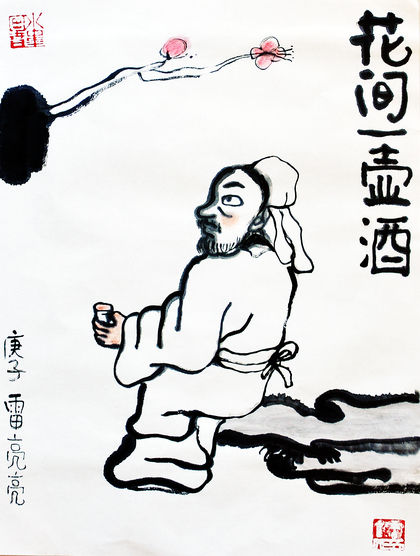 花间一壶酒
庚子 雷亮亮